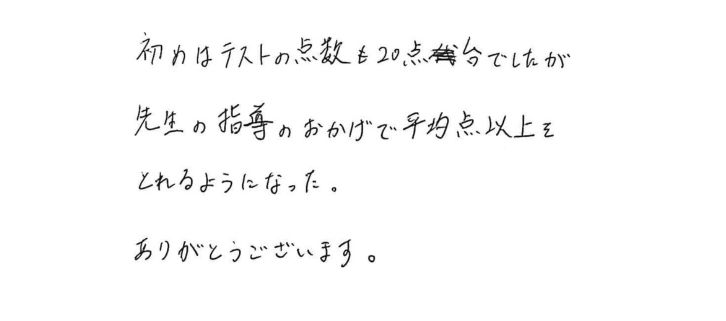 初めはテストの点数も20点台でしたが
先生の指導のおかげで平均点以上を
とれるようになった。
ありがとうございます。